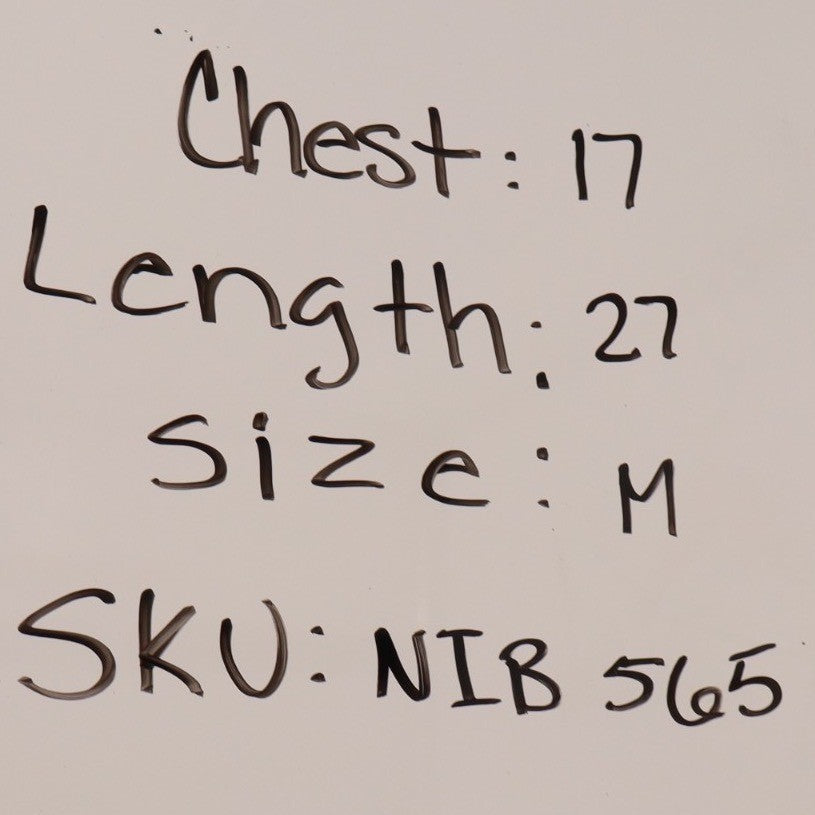 Chest: 17
Length: 27
Size: M
SKU: NIB 565